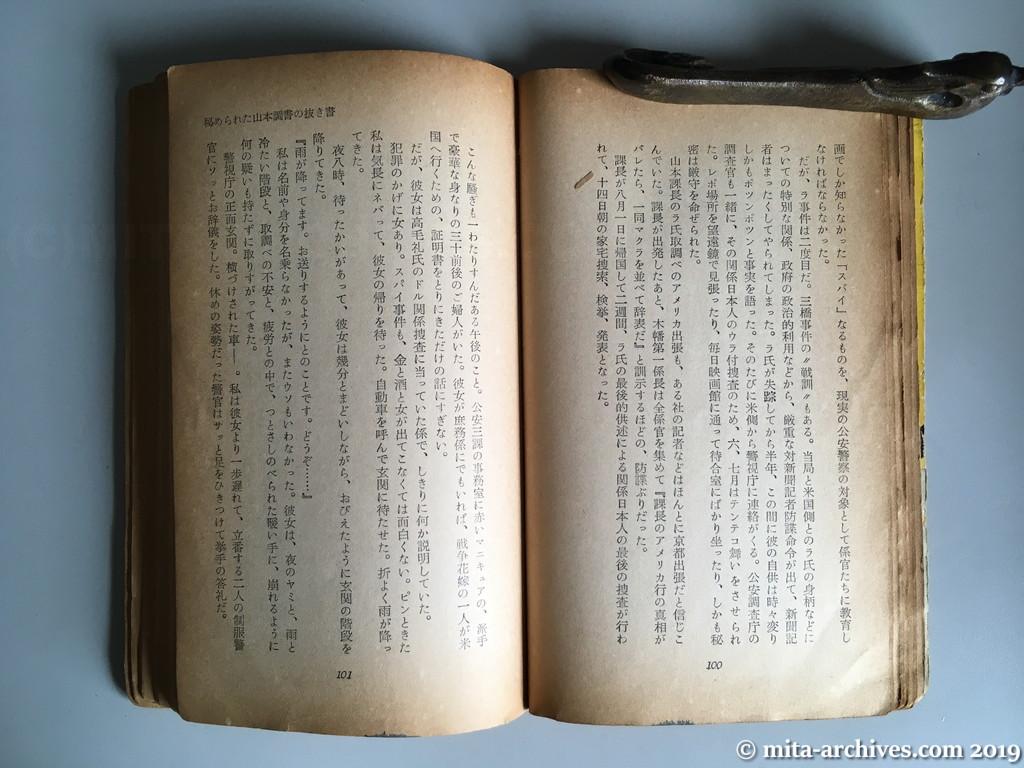 画でしか知らなかった「スパイ」なるものを、現実の公安警察の対象として係官たちに教育し
なければならなかった。
だが、ラ事件は二度目だ。三橋事件の〝戦訓〟もある。当局と米国側とのラ氏の身柄などに
ついての特別な関係、政府の政治的利用などから、厳重な対新聞記者防諜命令が出て、新聞記
者はまったくしてやられてしまった。ラ氏が失踪してから半年、この間に彼の自供は時々変り
しかもポツンポツンと事実を語った。そのたびに米側から警視庁に連絡がくる。公安調査庁の
調査官も一緒に、その関係日本人のウラ付捜査のため、六、七月はテンテコ舞いをさせられ
た。レポ場所を望遠鏡で見張ったり、毎日映画館に通って待合室にばかり坐ったり、しかも秘
密は厳守を命ぜられた。
山本課長のラ氏取調べのアメリカ出張も、ある社の記者などはほんとに京都出張だと信じこ
んでいた。課長が出発したあと、木幡第一係長は全係官を集めて『課長のアメリカ行の真相が
バレたら、一同マクラを並べて辞表だ』と訓示するほどの、防諜ぶりだった。
課長が八月一日に帰国して二週間、ラ氏の最後的供述による関係日本人の最後の捜査が行わ
れて、十四日朝の家宅捜索、検挙、発表となった。
100
秘められた山本調書の抜き書
こんな騒ぎも一わたりすんだある午後のこと。公安三課の事務室に赤いマニキュアの、派手
で豪華な身なりの三十前後のご婦人がいた。彼女が庶務係にでもいれば、戦争花嫁の一人が米
国へ行くための、証明書をとりにきただけの話にすぎない。
だが、彼女は高毛礼氏のドル関係捜査に当っていた係で、しきりに何か説明していた。
犯罪のかげに女あり。スパイ事件も、金と酒と女が出てこなくては面白くない。ピンときた
私は気長にネバって、彼女の帰りを待った。自動車を呼んで玄関に待たせた。折よく雨が降っ
てきた。
夜八時、待ったかいがあって、彼女は幾分とまどいしながら、おびえたように玄関の階段を
降りてきた。
『雨が降ってます。お送りするようにとのことです。どうぞ……』
私は名前や身分を名乗らなかったが、またウソもいわなかった。彼女は、夜のヤミと、雨と
冷たい階段と、取調べの不安と、疲労との中で、つとさしのべられた暖い手に、崩れるように
何の疑いも持たずに取りすがってきた。
警視庁の正面玄関。横づけされた車——。私は彼女より一歩遅れて、立番する二人の制服警
官にソッとお辞儀をした。休めの姿勢だった警官はサッと足をひきつけて挙手の答礼だ。
101
© mita-archives.com 2019